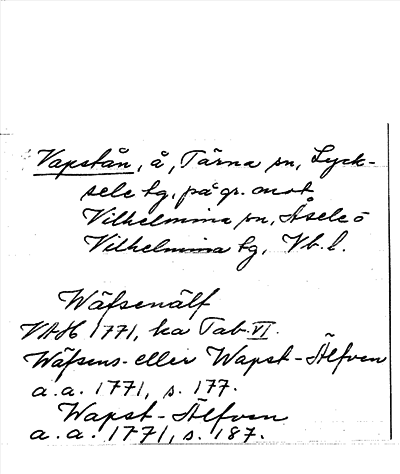 Vapstån, å, Tärna sn, Lyck-
sele tg, på gr. mot
Vilhelmina sn, Åsele o
Vilhelmina tg, Vb. l.
Wäfsenälf
VAH 1771, ka Tab. VI.
Wäfsens- eller Wapst-Älfven
a. a. 1771, s. 177.
Wapst-Älfven
a. a. 1771, s. 187.